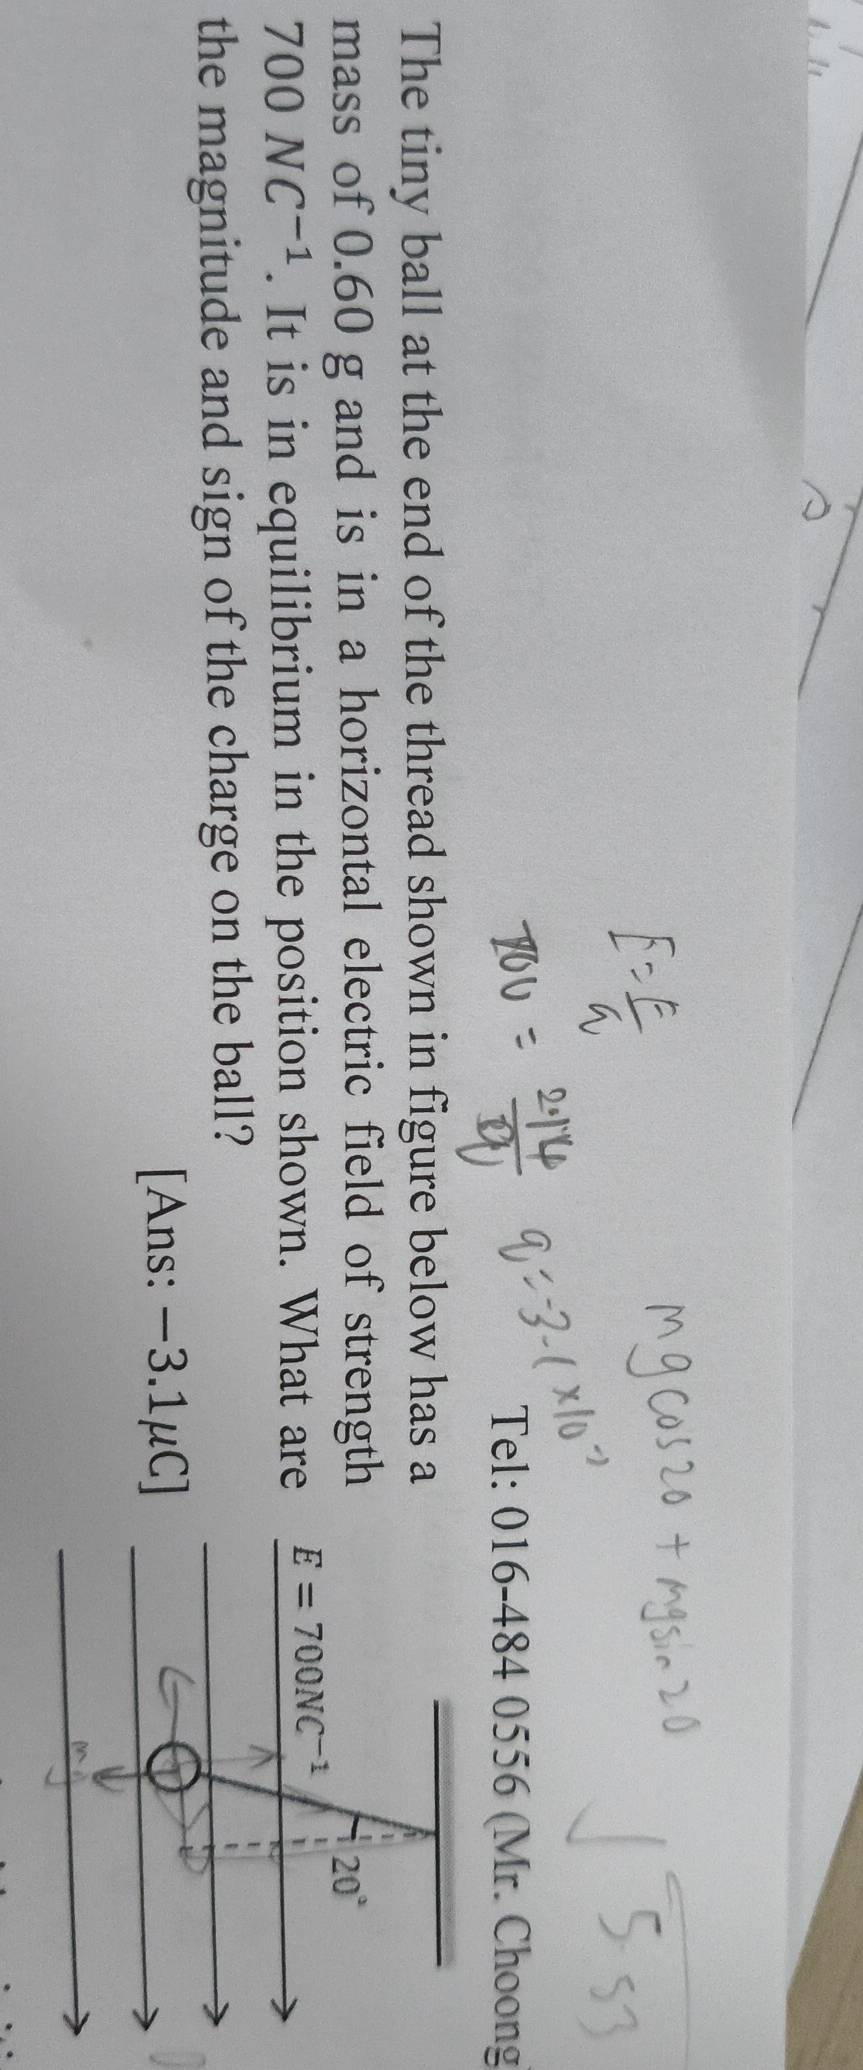 mg cos 20 + mg sin 20
√5.53
700 = 2.14/q
q = -3.1 x 10
Tel: 016-484 0556 (Mr. Choong
The tiny ball at the end of the thread shown in figure below has a
mass of 0.60 g and is in a horizontal electric field of strength
700 NC⁻¹. It is in equilibrium in the position shown. What are
the magnitude and sign of the charge on the ball?
[Ans: −3.1μC]
E = 700NC⁻¹
20°
mg